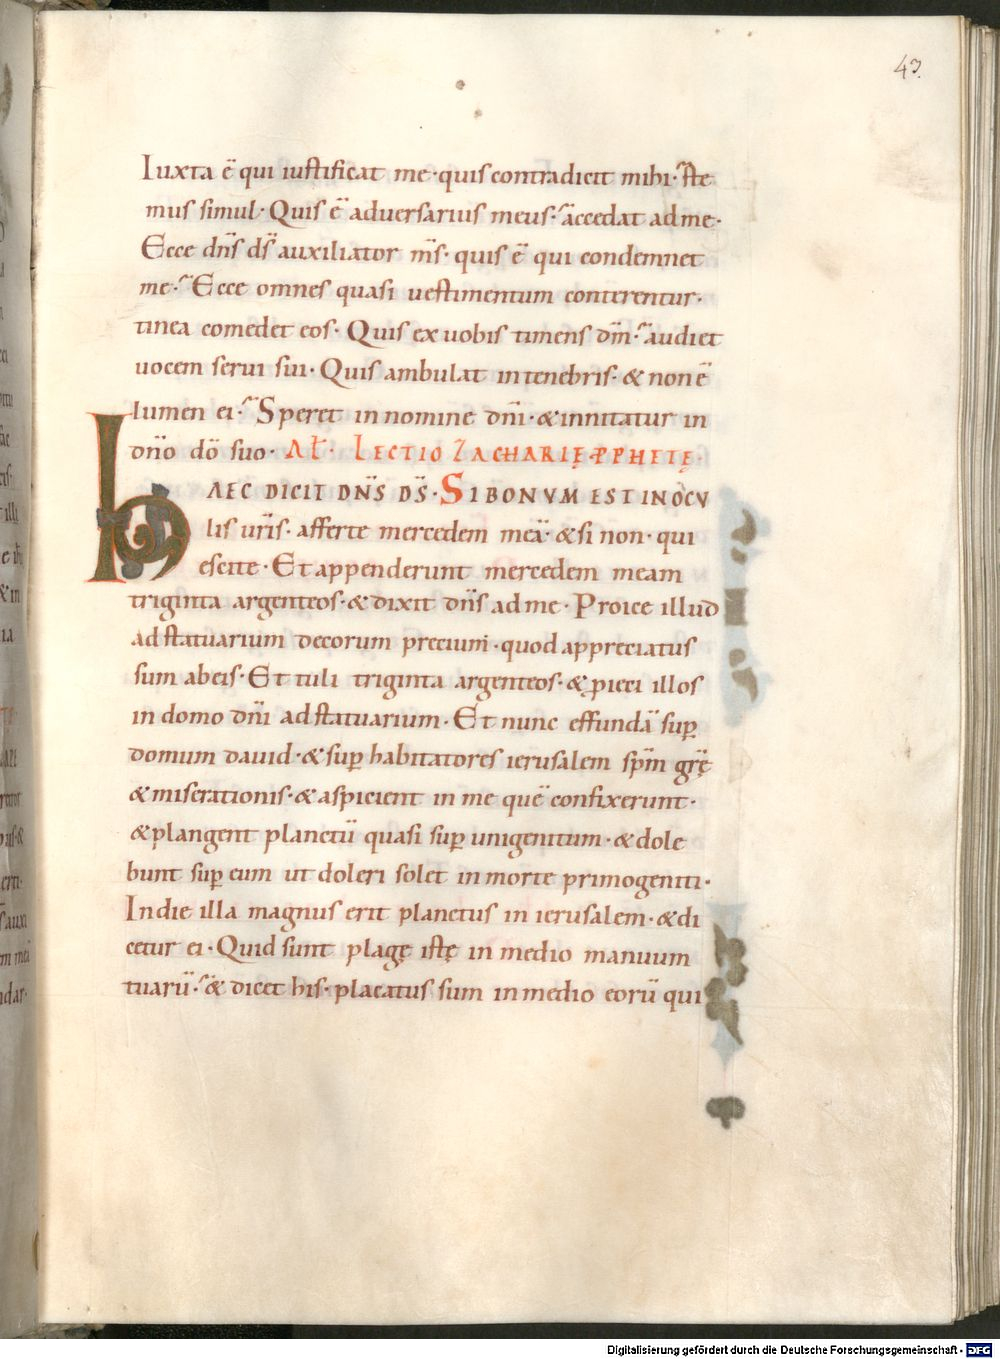 43.
Iuxta ē qui iustificat me · quis contradicit mihi · ste
mus simul · Quis ē adversarius meus · accedat ad me ·
Ecce dn̄s ds̄ auxiliator ms̄ · quis ē qui condemnet
me · Ecce omnes quasi vestimentum conterentur ·
tinea comedet eos · Quis ex vobis timens dn̄m · audiet
vocem servi sui · Quis ambulat in tenebris · & non ē
lumen ei · Speret in nomine dn̄i · & innitatur in
dn̄o dō suo · AL̄ · LECTIO ZACHARIĘ PPHETĘ
HAEC DICIT DN̄S DS̄ · SI BONVM EST IN OCV
lis vrīs · afferte mercedem meā · & si non · qui
escite · Et appenderunt mercedem meam
triginta argenteos · & dixit dn̄s ad me · Proice illud
ad statuarium decorum precium · quod appreciatus
sum ab eis · Et tuli triginta argenteos · & ꝓieci illos
in domo dn̄i ad statuarium · Et nunc effundā suꝑ
domum david · & suꝑ habitatores ierusalem sp̄m grē̄
& miserationis · & aspicient in me quē confixerunt ·
& plangent planctū quasi suꝑ unigenitum · & dole
bunt suꝑ eum ut doleri solet in morte primogeniti ·
In die illa magnus erit planctus in ierusalem · & di
cetur ei · Quid sunt plagę istę in medio manuum
tuarū · & dicet his · placatus sum in medio eorū qui
Digitalisierung gefördert durch die Deutsche Forschungsgemeinschaft - DFG